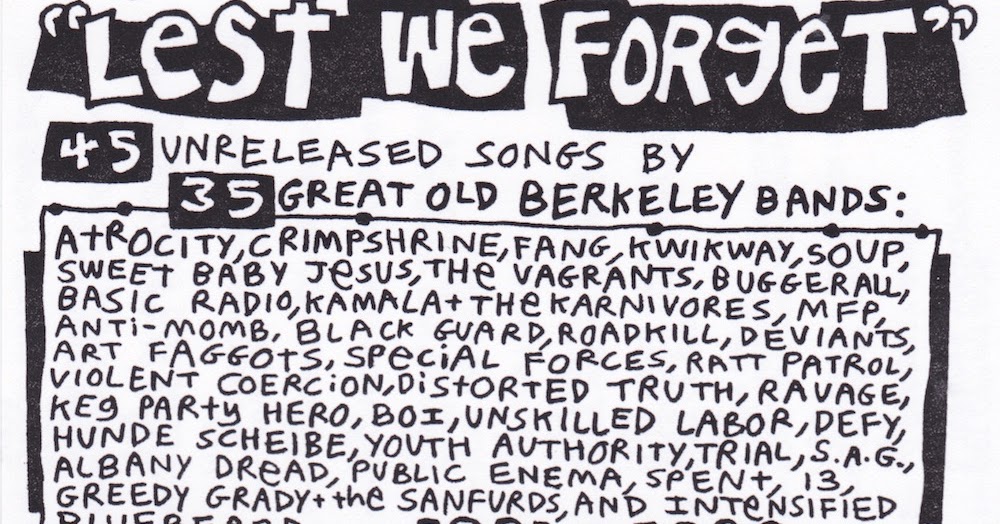 "Lest We Forget"
45 UNRELEASED SONGS BY
35 GREAT OLD BERKELEY BANDS:
AtROCITY, CRIMPSHRINE, FANG, KWIKWAY, SOUP,
SWEET BABY JeSUS, THe VAGRANTS, BUGGERALL,
BASIC RADIO, KAMALA + THe KARNIVORES, MFP,
ANTi-MOMB, BLACK GUARD, ROADKILL, DEVIANTS,
ART FAGGOtS, SPeCiAL FORCES, RATT PATROL,
VIOLENT COERCiON, DiStORTED TRUTH, RAVAGE,
KEg PARty HERO, BOI, UNSKILLED LABOR, DEFY,
HUNDE SCHEIBE, YOUTH AUTHORITY, TRIAL, S.A.G.,
ALBANY DReAD, PUBLIC ENEMA, SPENt, 13,
GREEDY GRADY + the SANFURDS, AND INteNSIFIED